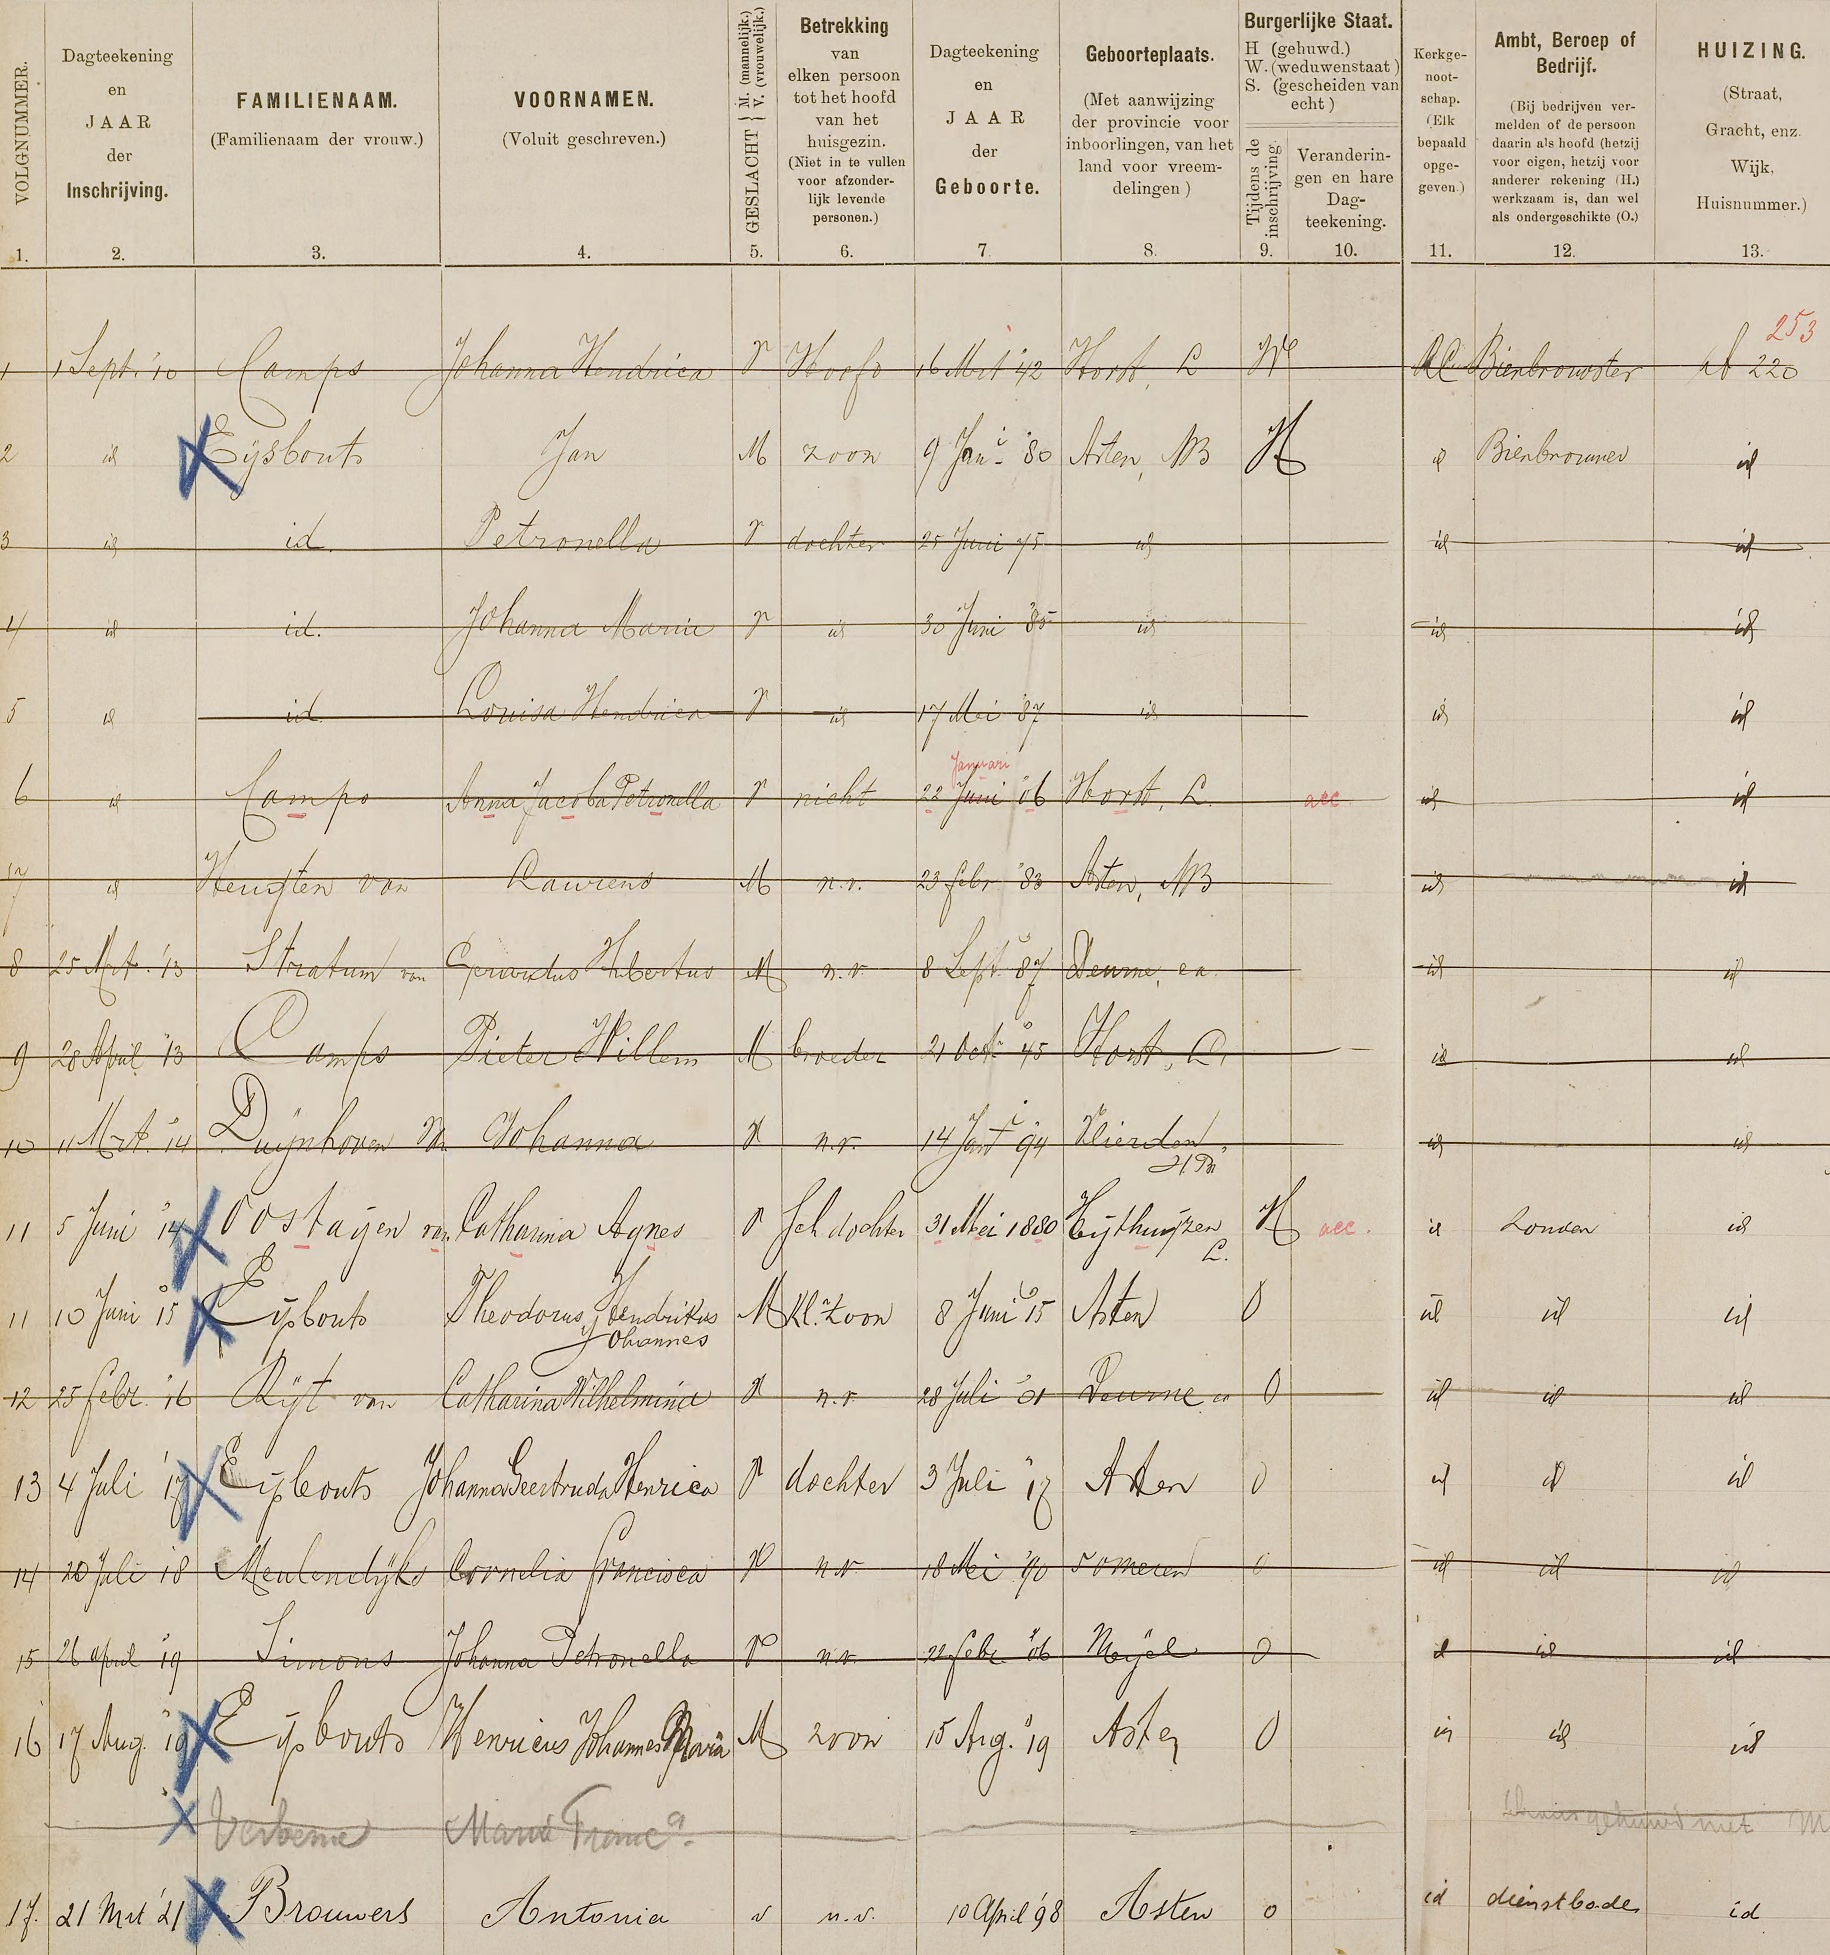 VOLGNUMMER.
1.
Dagteekening
en
JAAR
der
Inschrijving.
2.
FAMILIENAAM.
(Familienaam der vrouw.)
3.
VOORNAMEN.
(Voluit geschreven.)
4.
GESLACHT { M. (mannelijk.) V. (vrouwelijk.)
5.
Betrekking
van
elken persoon
tot het hoofd
van het
huisgezin.
(Niet in te vullen
voor afzonder-
lijk levende
personen.)
6.
Dagteekening
en
JAAR
der
Geboorte.
7.
Geboorteplaats.
(Met aanwijzing
der provincie voor
inboorlingen, van het
land voor vreem-
delingen)
8.
Burgerlijke Staat.
H (gehuwd.)
W. (weduwenstaat)
S. (gescheiden van
echt)
Tijdens de
inschrijving.
9.
Veranderin-
gen en hare
Dag-
teekening.
10.
Kerkge-
noot-
schap.
(Elk
bepaald
opge-
geven.)
11.
Ambt, Beroep of
Bedrijf.
(Bij bedrijven ver-
melden of de persoon
daarin als hoofd (hetzij
voor eigen, hetzij voor
anderer rekening (H.)
werkzaam is, dan wel
als ondergeschikte (O.)
12.
HUIZING.
(Straat,
Gracht, enz.
Wijk,
Huisnummer.)
13.
253
1 1 Sept. '10 Camps Johanna Hendrica V Hoofd 16 Mrt '42 Horst, L W RC Bierbrouwster 220
2 id Eijsbouts Jan M zoon 9 Jan '80 Asten, NB H id Bierbrouwer id
3 id id. Petronella V dochter 25 Juni 75 id id id
4 id id. Johanna Maria V id 30 Juni '85 id id id
5 id id Louisa Hendrica V id 17 Mei '87 id id id
Januari
6 id Camps Anna Jacoba Petronella V nicht 22 Juni '06 Horst, L. acc. id id
7 id Heugten van Laurens M n.v. 23 febr '83 Asten, NB id id
8 25 Mrt. '13 Stratum van Gerardus Hubertus M n.v. 8 Sept. '87 Deurne, ca. id id
9 28 April '13 Camps Pieter Willem M broeder 21 Oct. '45 Horst, L. id id
10 11 Mrt. '14 Duijnhoven v. Johanna V n.v. 14 Jan '94 Vlierden id id
11 5 Juni '14 Oostayen van Catharina Agnes V sch dochter 31 Mei 1880 Heijthuijzen H acc. id zonder id
L.
11 10 Juni '15 Eijsbouts Theodorus Hendrikus M Kl. zoon 8 Juni '15 Asten O id id id
Johannes
12 25 febr. '16 Rijt van Catharina Wilhelmina V n.v. 28 Juli '01 Deurne ca O id id id
13 4 Juli '17 Eijsbouts Johanna Geertruda Henrica V dochter 3 Juli '17 Asten O id id id
14 20 Juli '18 Meulendijks Cornelia francisca V n.v. 18 Mei '90 Someren O id id id
15 26 april '19 Simons Johanna Petronella V n.v. 22 febr. '06 Meijel O id id id
16 17 Aug. '19 Eijsbouts Henricus Johannes Maria M zoon 15 Aug. '19 Asten O id id id
Verberne Maria Franc. gehuwd met M
17. 21 Mrt '21 Brouwers Antonia v n.v. 10 April '98 Asten o id dienstbode id